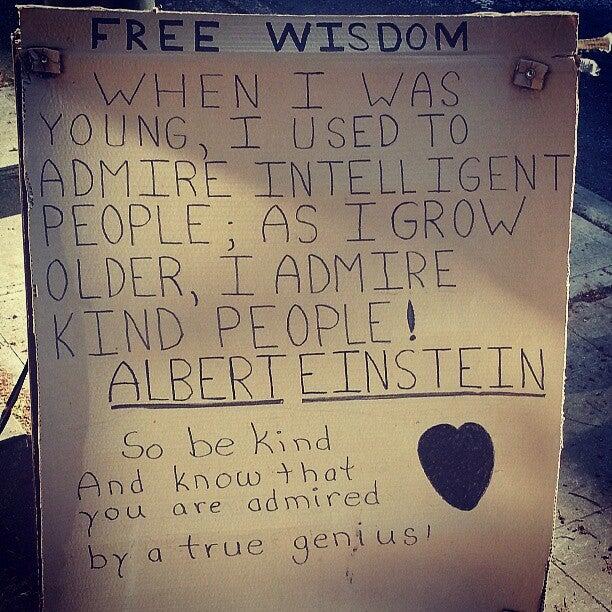 FREE WISDOM
WHEN I WAS
YOUNG, I USED TO
ADMIRE INTELLIGENT
PEOPLE; AS I GROW
OLDER, I ADMIRE
KIND PEOPLE!
ALBERT EINSTEIN
So be kind
And know that
you are admired
by a true genius!